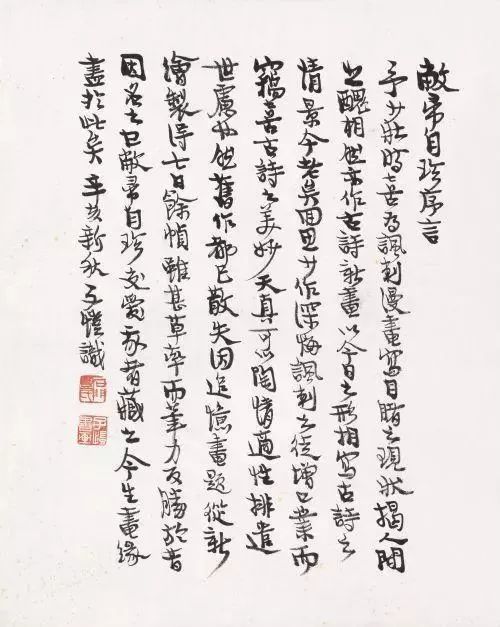 敝帚自珍序言
予少壯時喜為諷刺漫畫寫目睹之現狀揭人間
之醜相然亦作古詩新畫以今日之形相寫古詩之
情景今老矣回思少作深悔諷刺之徒增口業而
竊喜古詩之美妙天真可以陶情適性排遣
世慮也然舊作都已散失因追憶畫題從新
繪製得七十餘幀雖甚草率而筆力反勝於昔
因名之曰敝帚自珍交愛我者藏之今生畫緣
盡於此矣辛亥新秋子愷識